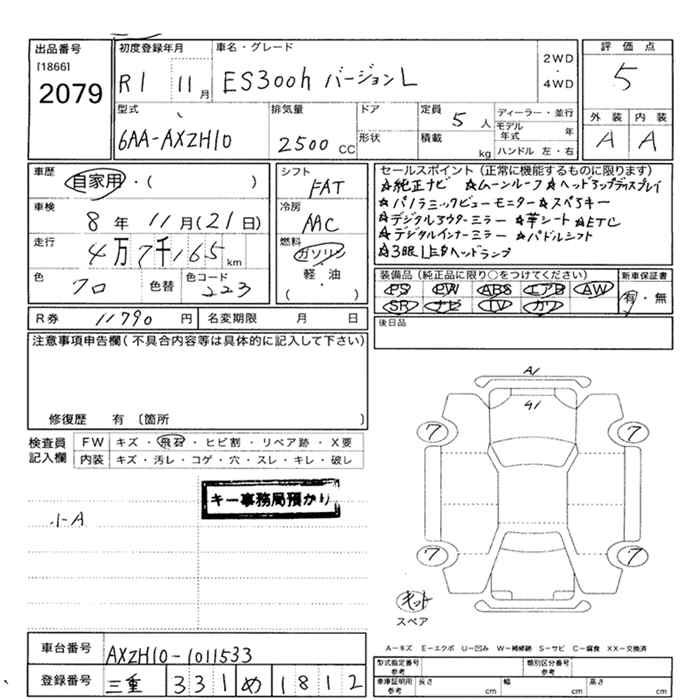 出品番号
[1866]
2079
初度登録年月
R1 11月
車名・グレード
ES300h バージョンL
2WD
・
4WD
評価点
5
外装 内装
A A
型式
6AA-AXZH10
排気量
2500 CC
ドア
形状
定員 5 人
積載 kg
ディーラー・並行
モデル年式 年
ハンドル 左・右
車歴
自家用・( )
車検
8年 11月(21日)
走行
4万7千165 km
色
クロ
色替
色コード
223
シフト
FAT
冷房
AAC
燃料
ガソリン
・
軽・油
( )
セールスポイント(正常に機能するものに限ります)
☆純正ナビ ☆ムーンルーフ ☆ヘッドアップディスプレイ
☆パノラミックビューモニター ☆スペアキー
☆デジタルアウターミラー ☆革シート ☆ETC
☆デジタルインナーミラー ☆パドルシフト
☆3眼LEDヘッドランプ
装備品(純正品に限り○をつけてください)
PS PW ABS エアB AW
SR ナビ TV カワ
新車保証書
有・無
後日品
R券 11790 円
名変期限 月 日
注意事項申告欄(不具合内容等は具体的に記入して下さい)
修復歴 有〔箇所 〕
検査員
記入欄
FW キズ・飛石・ヒビ割・リペア跡・X要
内装 キズ・汚レ・コゲ・穴・スレ・キレ・破レ
キー事務局預かり
小A
A1
A1
7
7
7
7
キット
スペア
A－キズ E－エクボ U－凹み W－補修跡 S－サビ C－腐食 XX－交換済
車台番号
AXZH10-1011533
登録番号
三重 331 め 1812
型式指定番号
参考
類別区分番号
参考
車庫証明用
参考
長さ cm 幅 cm 高さ cm